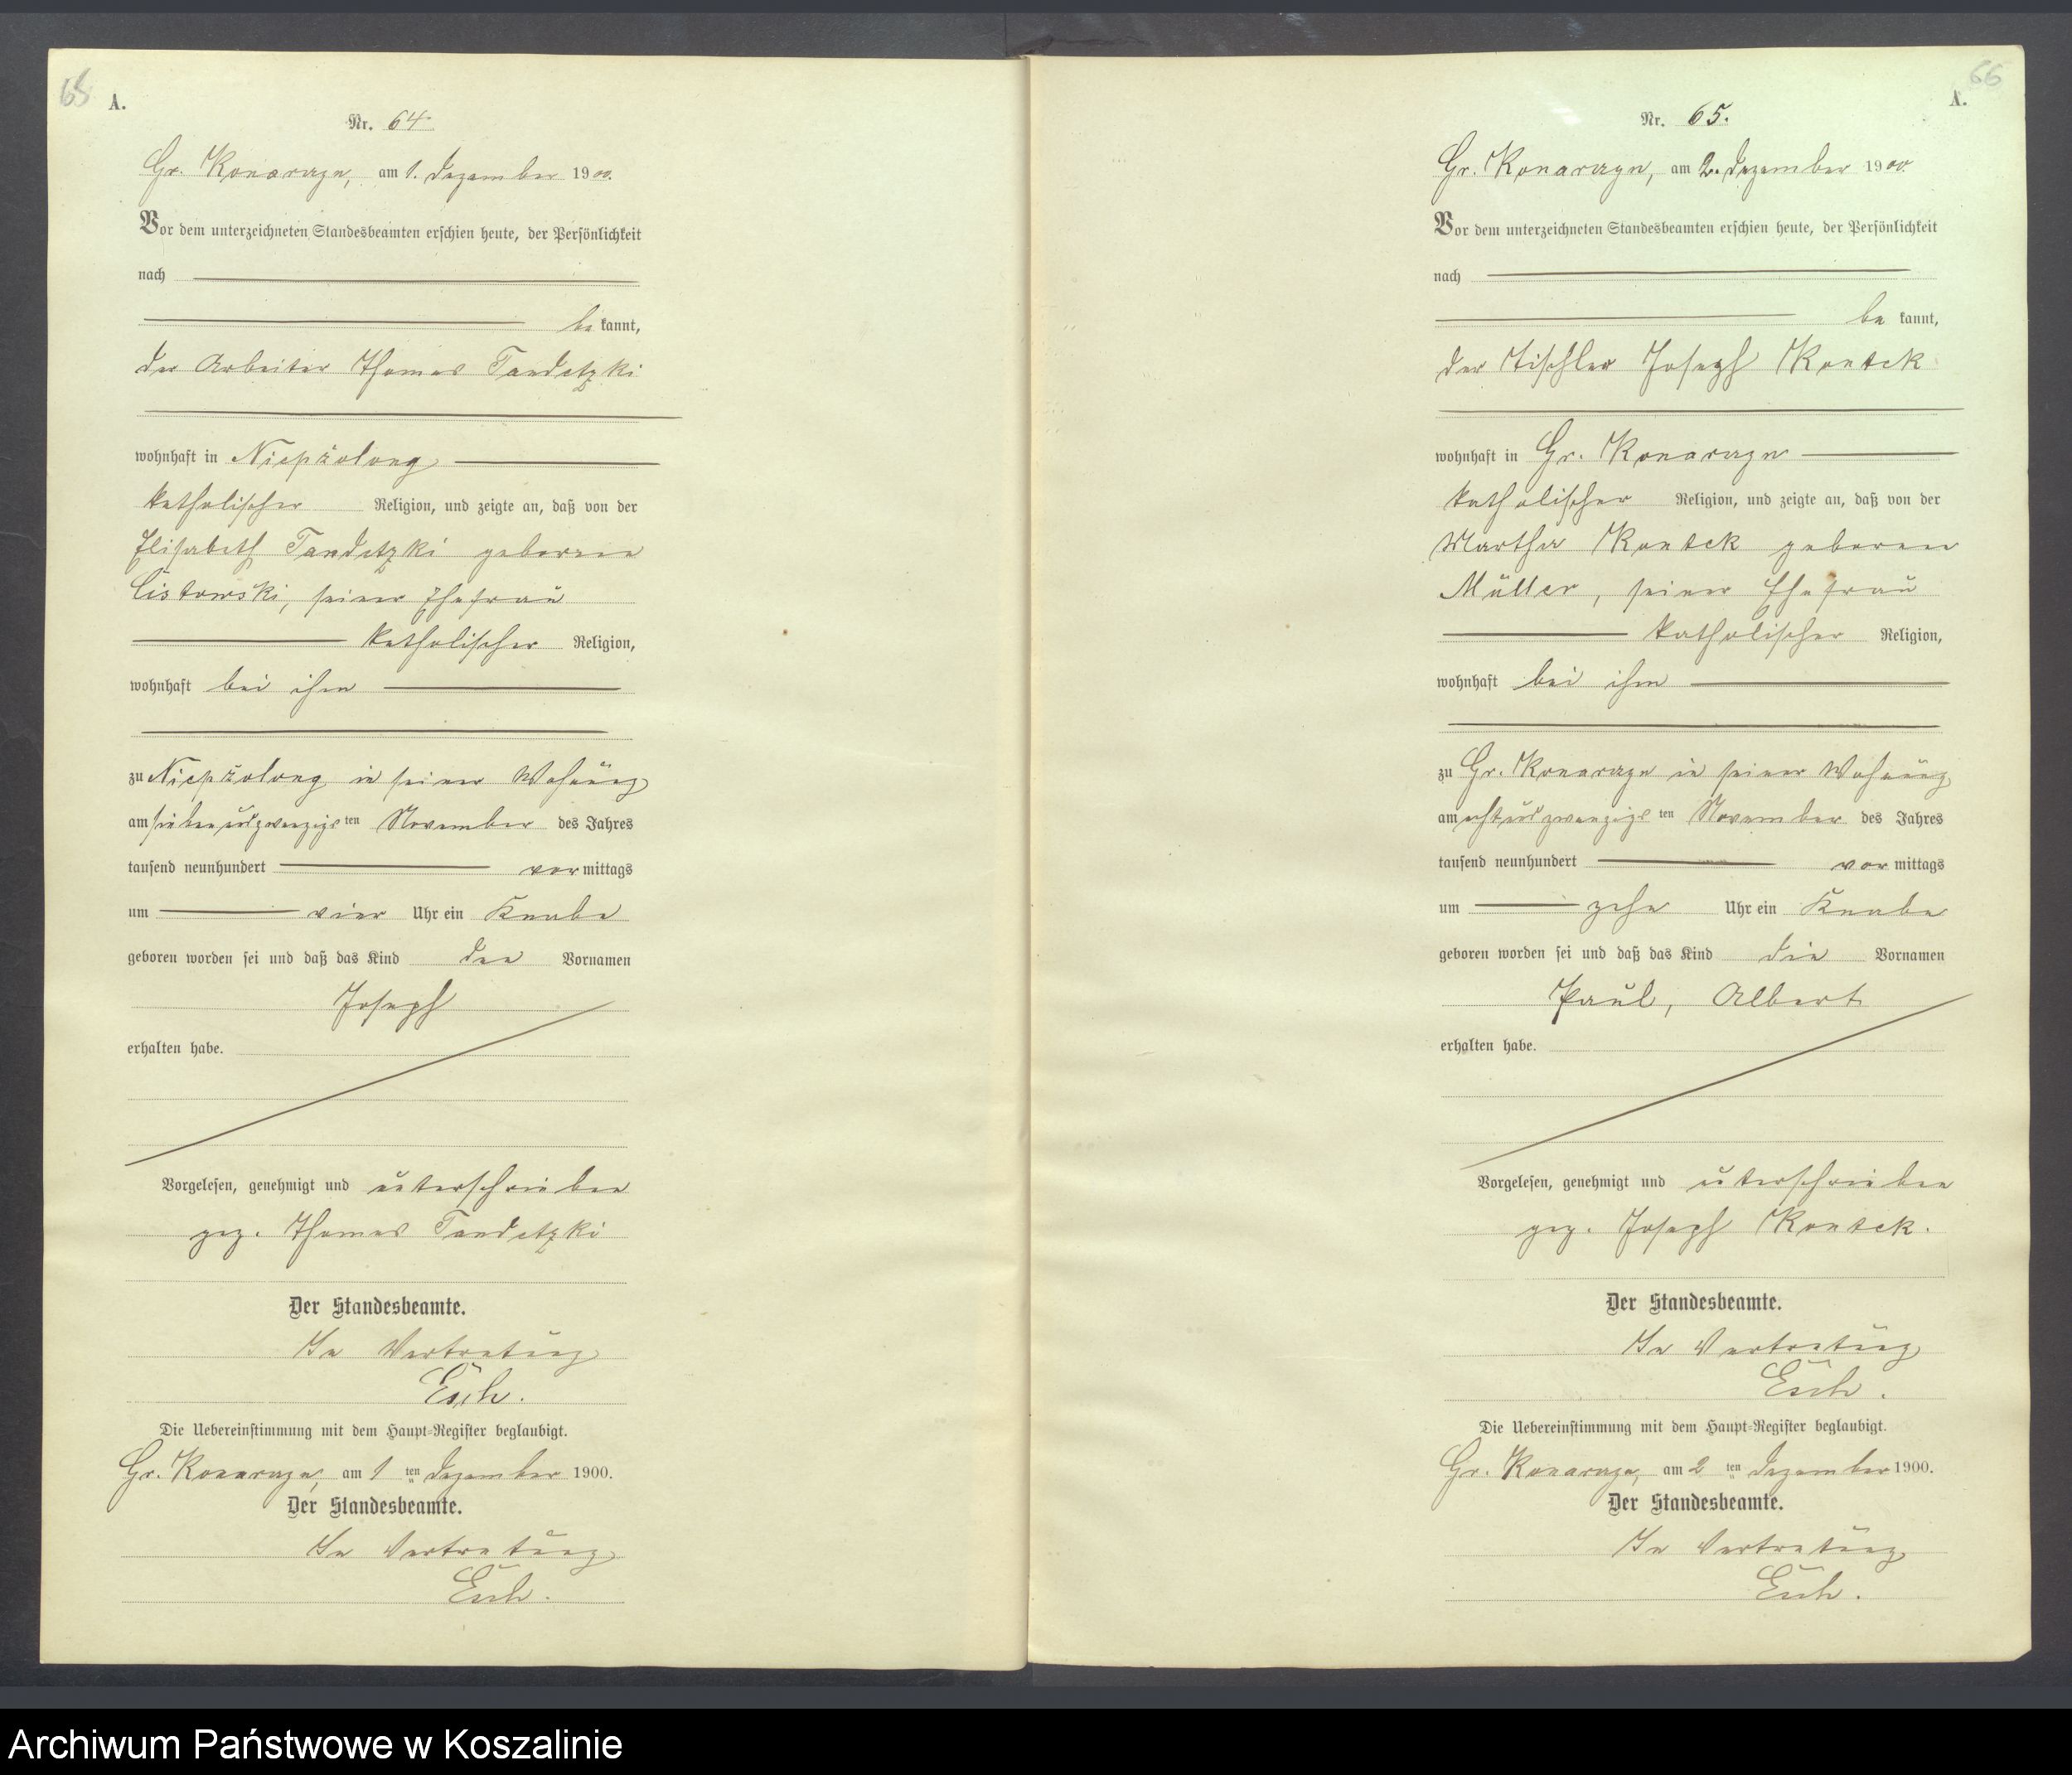 65
A.
Nr. 64.
Gr. Konarczyn, am 1. Dezember 1900.
Vor dem unterzeichneten Standesbeamten erschien heute, der Persönlichkeit
nach
be kannt,
der Arbeiter Thomas Tandetzki
wohnhaft in Niepszolong
katholischer Religion, und zeigte an, daß von der
Elisabeth Tandetzki geborene
Cistowski, seiner Ehefrau
katholischer Religion,
wohnhaft bei ihm
zu Niepszolong in seiner Wohnung
am siebenundzwanzigs ten November des Jahres
tausend neunhundert vor mittags
um vier Uhr ein Knabe
geboren worden sei und daß das Kind den Vornamen
Joseph
erhalten habe.
Vorgelesen, genehmigt und unterschrieben
gez. Thomas Tandetzki
Der Standesbeamte.
In Vertretung
Esch.
Die Uebereinstimmung mit dem Haupt-Register beglaubigt.
Gr. Konarczyn, am 1 ten Dezember 1900.
Der Standesbeamte.
In Vertretung
Esch.
66
A.
Nr. 65.
Gr. Konarczyn, am 2. Dezember 1900.
Vor dem unterzeichneten Standesbeamten erschien heute, der Persönlichkeit
nach
be kannt,
der Tischler Joseph Kontek
wohnhaft in Gr. Konarczyn
katholischer Religion, und zeigte an, daß von der
Martha Kontek geborene
Müller, seiner Ehefrau
katholischer Religion,
wohnhaft bei ihm
zu Gr. Konarczyn in seiner Wohnung
am achtundzwanzigs ten November des Jahres
tausend neunhundert vor mittags
um zehn Uhr ein Knabe
geboren worden sei und daß das Kind die Vornamen
Paul, Albert
erhalten habe.
Vorgelesen, genehmigt und unterschrieben
gez. Joseph Kontek.
Der Standesbeamte.
In Vertretung
Esch.
Die Uebereinstimmung mit dem Haupt-Register beglaubigt.
Gr. Konarczyn, am 2 ten Dezember 1900.
Der Standesbeamte.
In Vertretung
Esch.
Archiwum Państwowe w Koszalinie